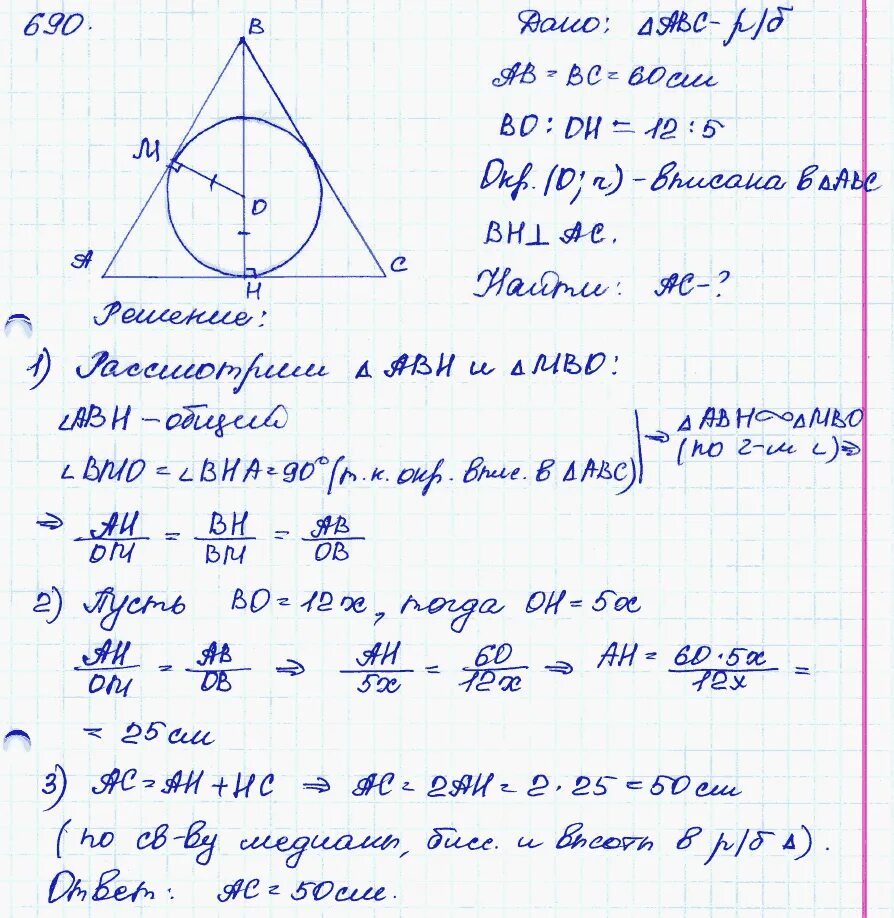 690.
B
M
O
A
C
H
Дано: △ABC - р/б
AB = BC = 60см
BO : OH = 12 : 5
Окр. (O; r) - вписана в △ABC
BH ⊥ AC.
Найти: AC - ?
Решение:
1) Рассмотрим △ ABH и △MBO:
∠ABH - общий
∠BMO = ∠BHA = 90° (т.к. окр. впис. в △ABC)
⇒ △ABH ∾ △MBO
(по 2-м ∠) ⇒
⇒ AH/OM = BH/BM = AB/OB
2) Пусть BO = 12x, тогда OH = 5x
AH/OM = AB/OB ⇒ AH/5x = 60/12x ⇒ AH = 60·5x/12x =
= 25см
3) AC = AH + HC ⇒ AC = 2AH = 2·25 = 50см
(по св-ву медианы, бисс. и высоты в р/б △).
Ответ: AC = 50см.